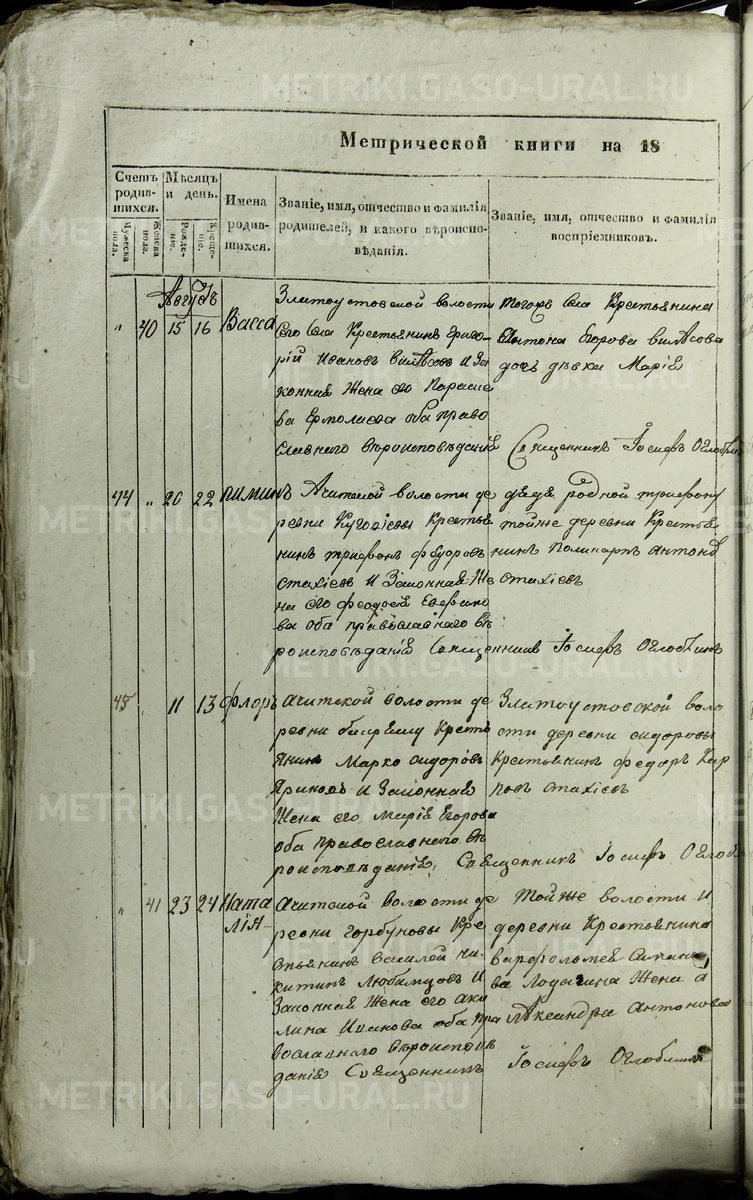 METRIKI.GASO-URAL.RU
Метрической книги на 18
Счетъ родив-шихся.
Мужеска пола.
Женска пола.
Мѣсяцъ и день.
Рожде-ніе.
Креще-ніе.
Имена родив-шихся.
Званіе, имя, отчество и фамилія родителей, и какого вѣроиспо-вѣданія.
Званіе, имя, отчество и фамилія воспріемниковъ.
Августъ
„ 40 15 16 Васса
Златоустовской волости
сего села Крестьянинъ Григо-
рій Ивановъ и За
конная жена его Параске
ва Ермолаева оба право
славнаго вѣроисповѣданія
того села Крестьянина
Антона Егорова
дочь дѣвка Марія
Священникъ Іосифъ Оглоблинъ
44 „ 20 22 Пиминъ
Ачитской волости де
ревни Крестья
нинъ Трифонъ Федоровъ
Стахіевъ и Законная же
на его Феодосія
ва оба православнаго вѣ
роисповѣданія
дядя родной Трифону
тойже деревни Крестья
нинъ Поликарпъ Антоновъ
Стахіевъ
Священникъ Іосифъ Оглоблинъ
45 11 13 Флоръ
Ачитской волости де
ревни Кресть
янинъ Марко Сидоровъ
и Законная
жена его Марія Егорова
оба православнаго вѣ
роисповѣданія
Златоустовской воло
сти деревни Сидоровы
Крестьянинъ Федоръ Кар
повъ Стахіевъ
Священникъ Іосифъ Оглоблинъ
„ 41 23 24 Ната
лія
Ачитской волости де
ревни Горбуновы Кре
стьянинъ Василей Ни-
китинъ Любимцовъ и
Законная жена его Аку
лина Иванова оба пра
вославнаго вѣроисповѣ
данія Священникъ
Тойже волости и
деревни Крестьянина
Варфоломея
ва Лодыгина жена А
лександра Антонова
Іосифъ Оглоблинъ